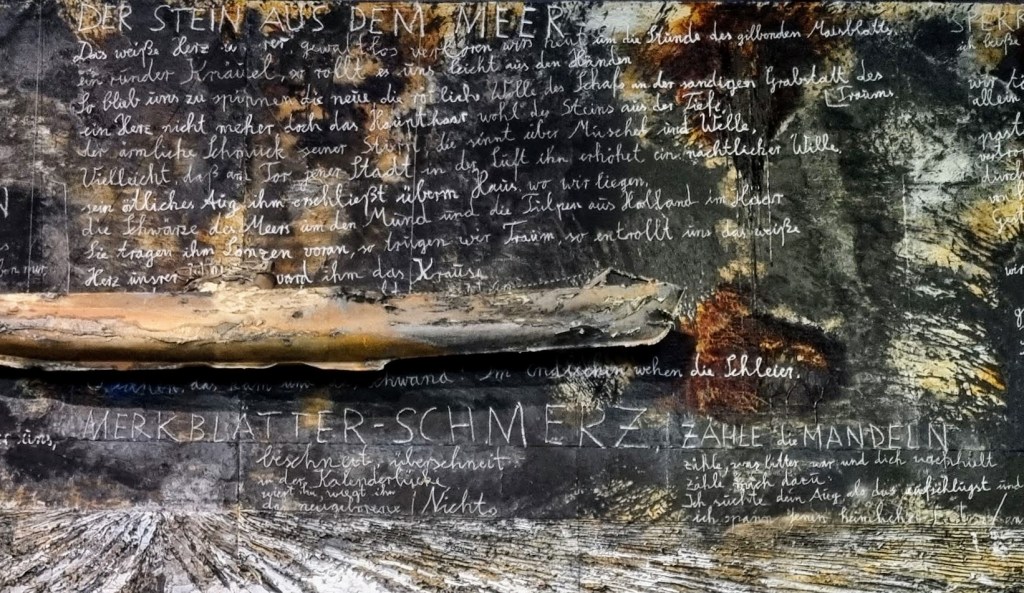 DER STEIN AUS DEM MEER
Das weiße Herz gewaltlos verloren wir heut um die Stunde des gilbenden Maisblatts.
ein runder Knäuel, so rollt es uns leicht aus den Händen
So blieb uns zu spinnen die neue, die rötliche Wolle des Schafs an der sandigen Grabstatt des Traums.
ein Herz nicht mehr, doch das Haupthaar wohl des Steins aus der Tiefe,
der ärmliche Schmuck seiner Stirn die sinnt über Muschel und Welle.
Vielleicht, daß am Tor jener Stadt in der Luft ihn erhöhet ein nächtlicher Wille,
sein östliches Aug ihm erschließt überm Haus, wo wir liegen,
die Schwärze des Meers um den Mund und die Tulpen aus Holland im Haar
Sie tragen ihm Lanzen voran, so trugen wir Traum, so entrollt uns das weiße
Herz unsrer ihm das Krause
wehen die Schleier.
MERKBLÄTTER-SCHMERZ,
beschneit, überschneit
in der Kalenderlücke
wiegt ihn, wiegt ihn
das neugeborene / Nicht.
ZÄHLE die MANDELN
zähle, was bitter war und dich wachhielt
zähle mich dazu:
Ich suchte dein Aug, als du's aufschlugst und
ich spann jenen heimlichen
SPERR
ich
wir
allein
durch
wir
uns,